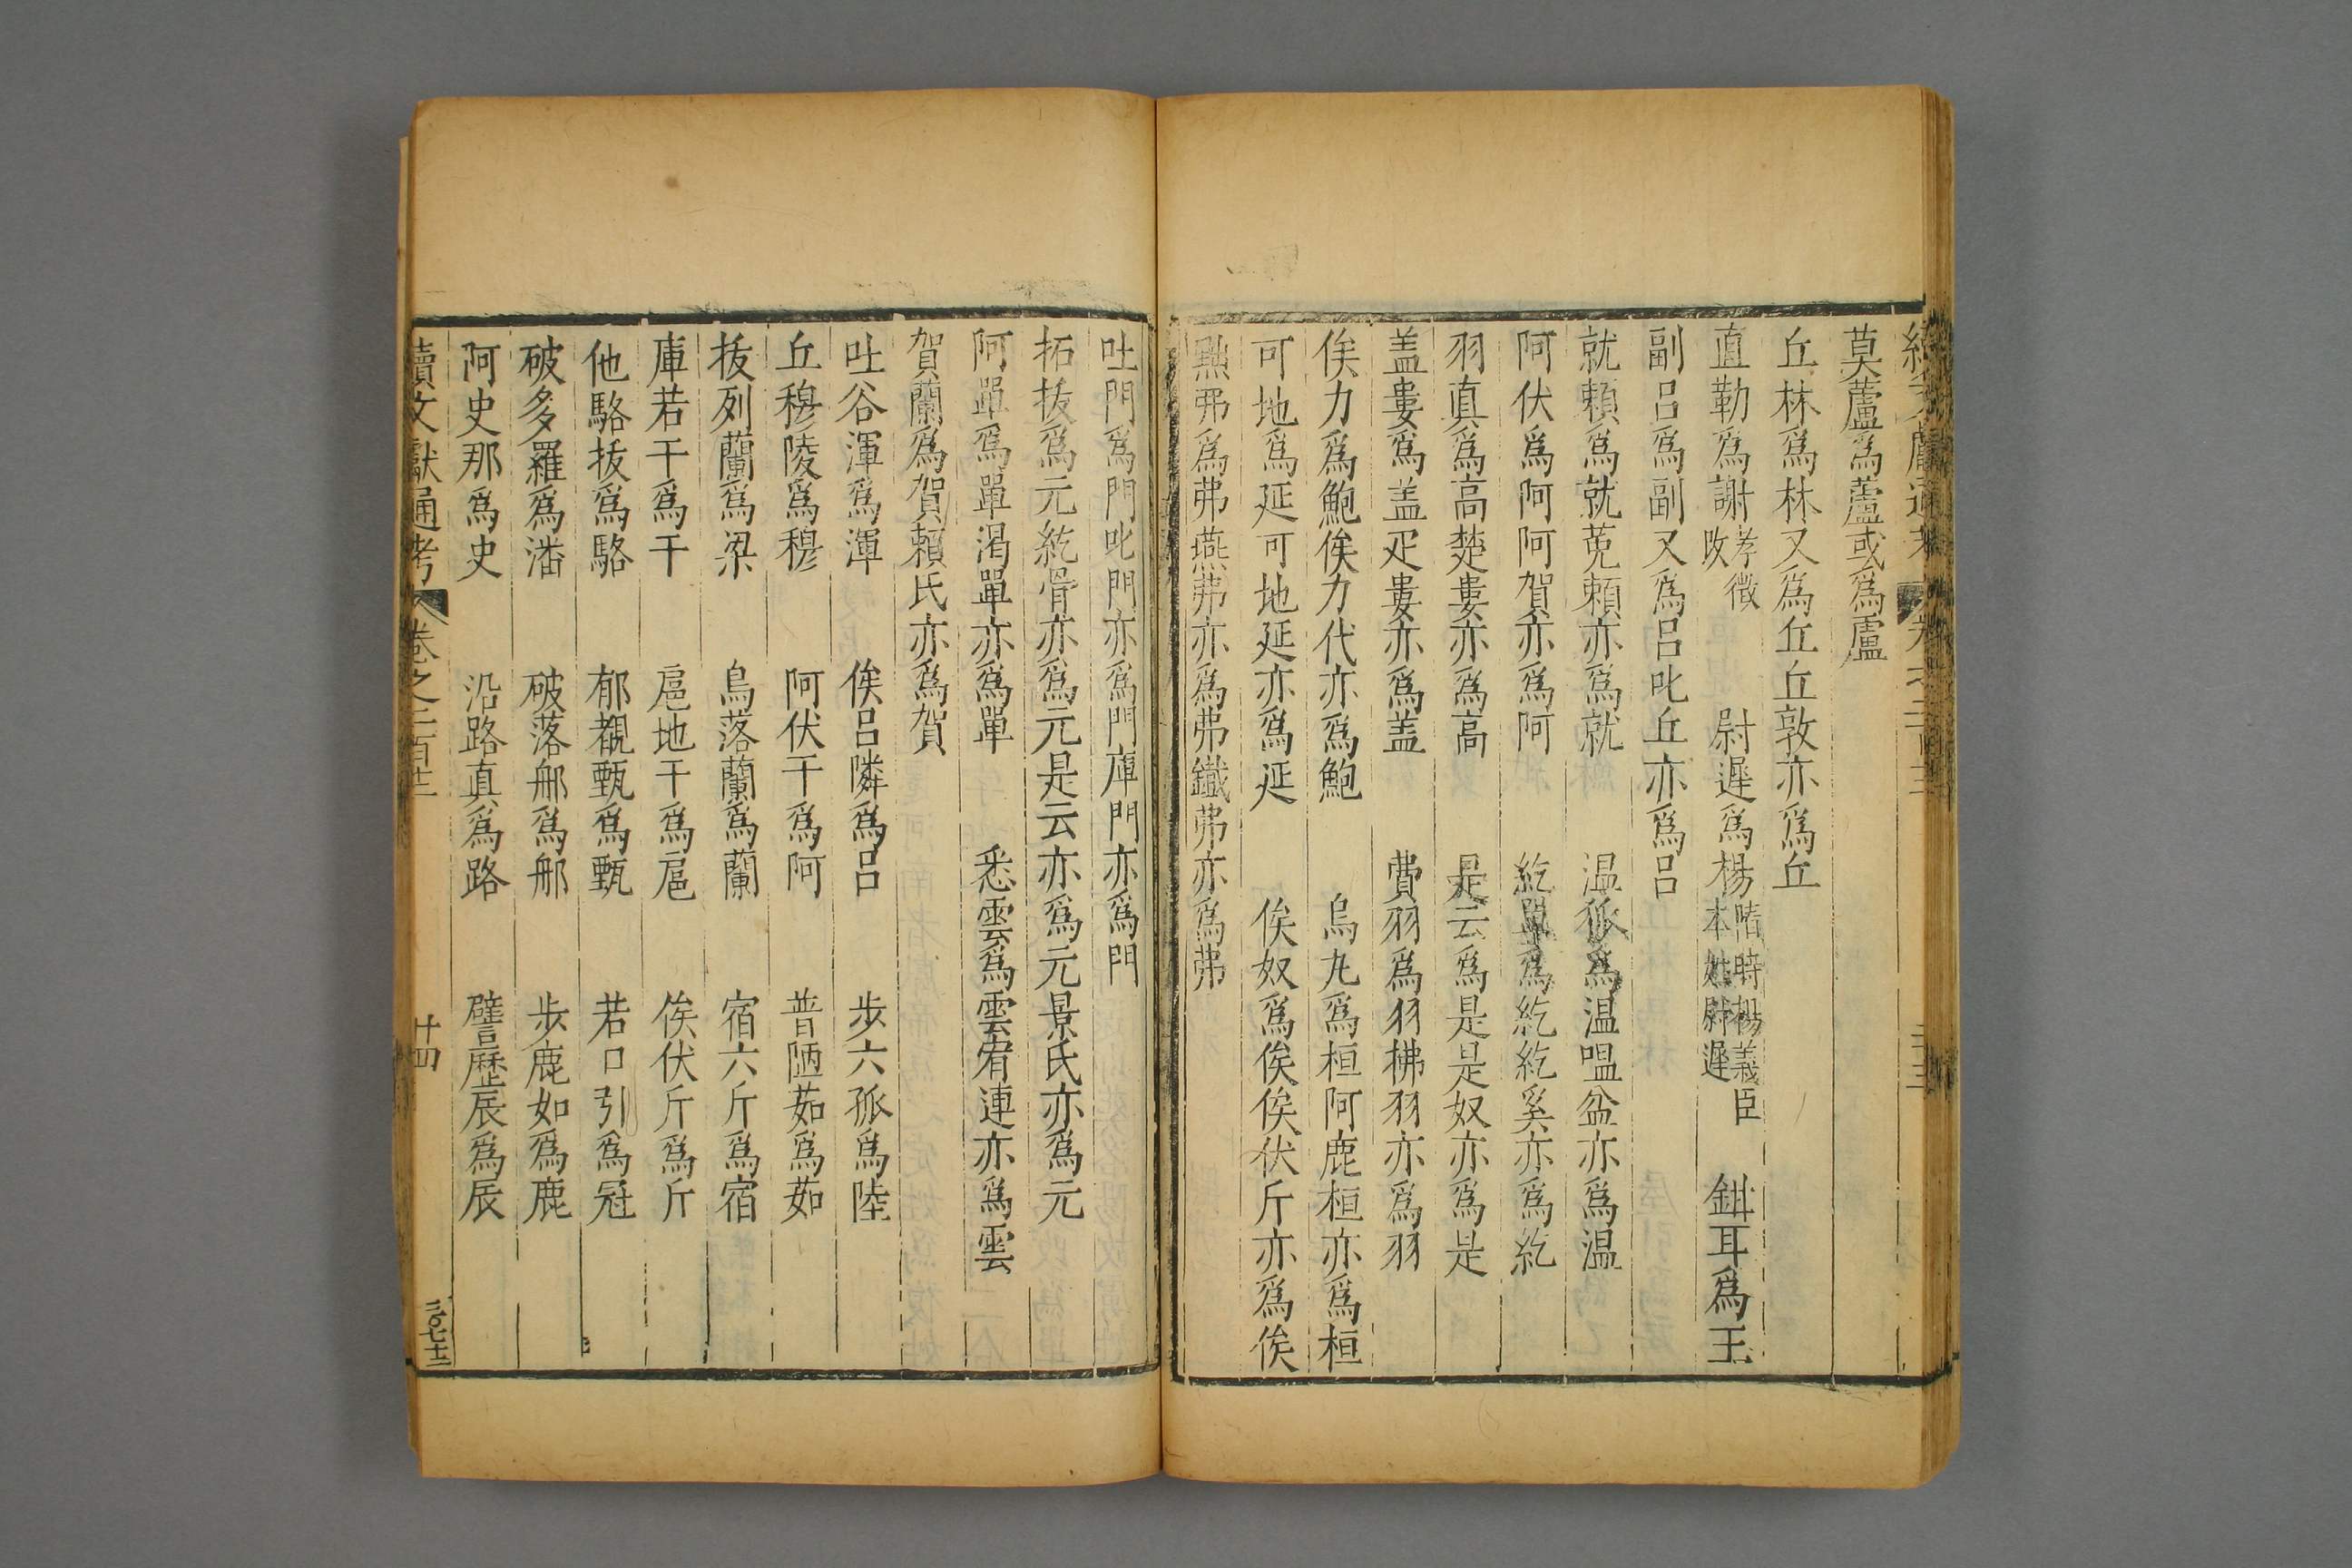 莫蘆爲蘆或爲盧
丘林爲林又爲丘丘敦亦爲丘
直勒爲謝孝徵改 尉遲爲楊隋時楊義臣本姓尉遲 鉗耳爲王
副呂爲副又爲呂叱丘亦爲呂
就賴爲就莵賴亦爲就 温狐爲温嗢盆亦爲温
阿伏爲阿阿賀亦爲阿 紇單爲紇紇奚亦爲紇
羽真爲高楚婁亦爲高 是云爲是是奴亦爲是
盖婁爲盖疋婁亦爲盖 費羽爲羽拂羽亦爲羽
俟力爲鮑俟力代亦爲鮑 烏丸爲桓阿鹿桓亦爲桓
可地爲延可地延亦爲延 俟奴爲俟俟伏斤亦爲俟
點弗爲弗燕弗亦爲弗鐵弗亦爲弗
吐門爲門叱門亦爲門庫門亦爲門
拓拔爲元紇骨亦爲元是云亦爲元景氏亦爲元
阿單爲單渴單亦爲單 悉雲爲雲宥連亦爲雲
賀蘭爲賀賴氏亦爲賀
吐谷渾爲渾 俟呂隣爲呂 步六孤爲陸
丘穆陵爲穆 阿伏干爲阿 普陋茹爲茹
拔列蘭爲梁 烏落蘭爲蘭 宿六斤爲宿
庫若干爲干 扈地干爲扈 俟伏斤爲斤
他駱拔爲駱 郁都甄爲甄 若口引爲冠
破多羅爲潘 破落那爲那 步鹿如爲鹿
阿史那爲史 沿路真爲路 譬歷辰爲辰
續文獻通考 卷之二百十三 廿四